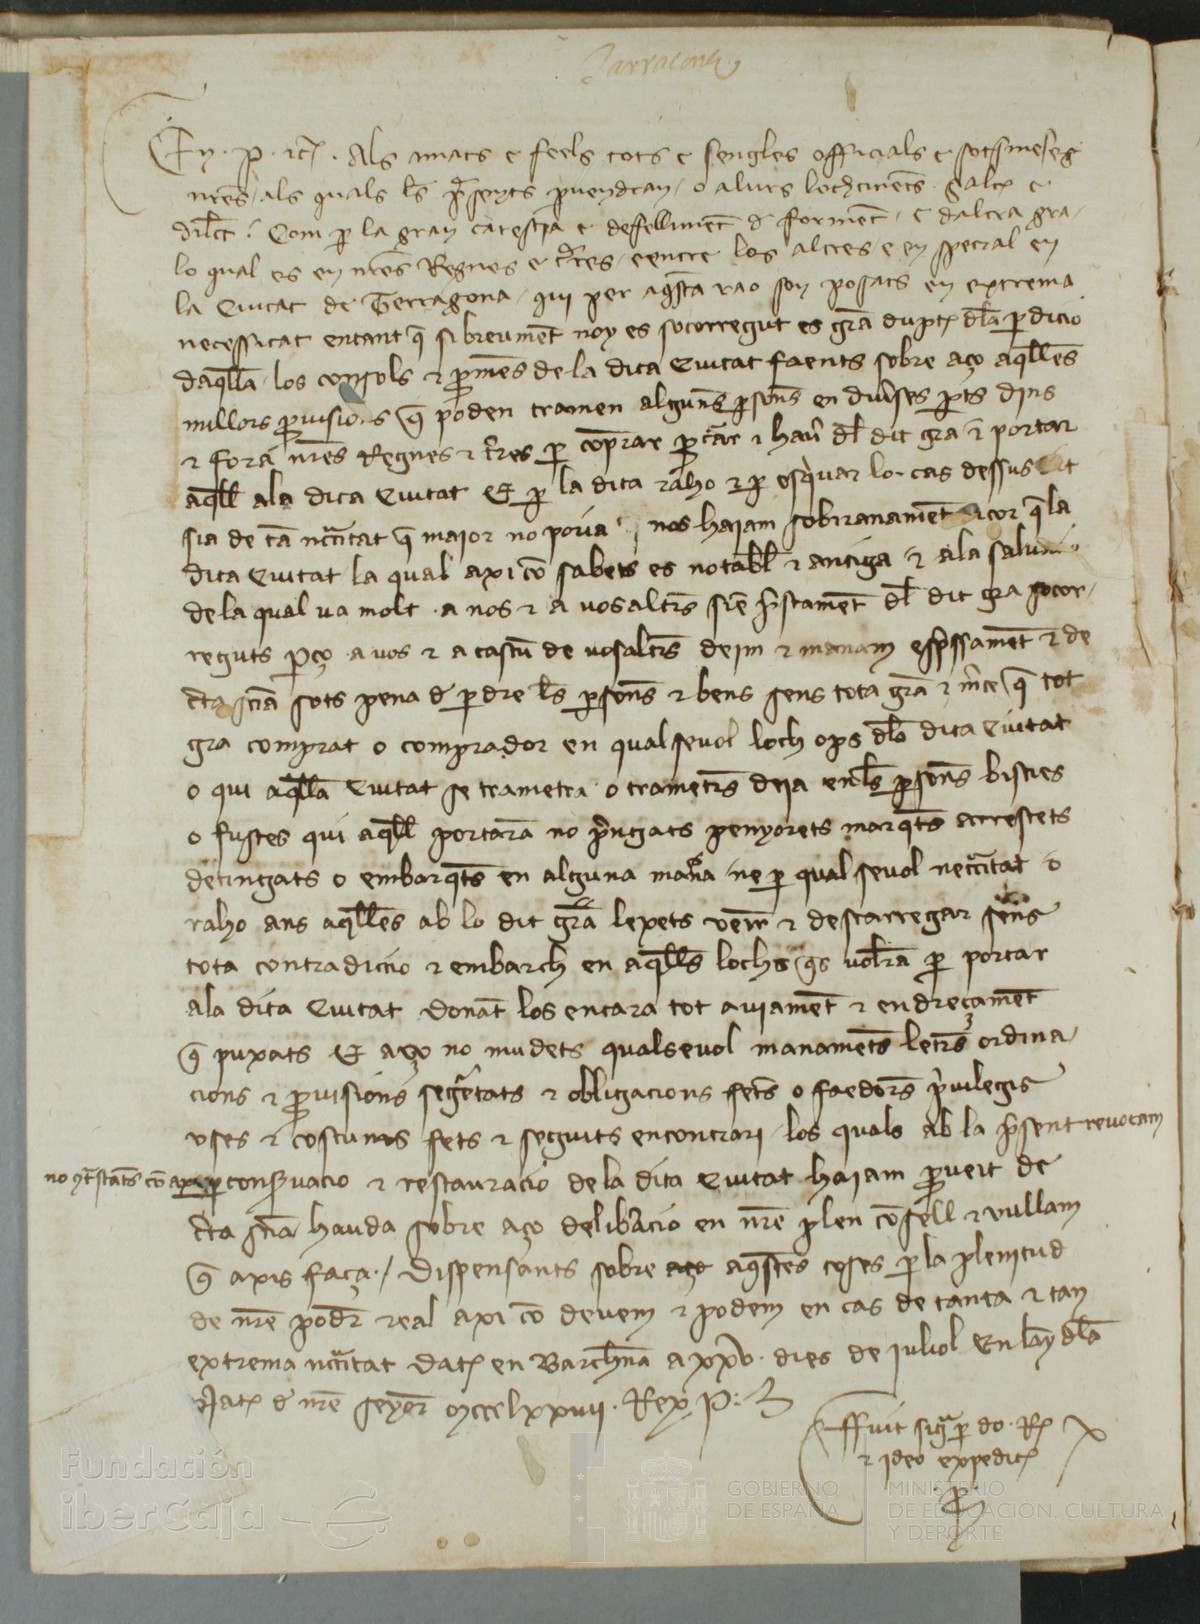 Tarracone
En . P . etc . Als amats e feels tots e sengles officials e sotsmeses
nrēs als quals les presents pvendran / o a lurs lochtinents salt e
dilct . Com p la gran carestia e defelliment d forment / e daltra gra
lo qual es en nrēs Regnes e terres / e entre los altres e en special en
la Ciutat de Terragona / qui per aqsta rao son posats en extrema
necessitat entant q si breument noy es socorregut es gra dupte dla pdicio
daqlla / los consols e pmens de la dita Ciutat faents sobre aço aqlles
millors pvisions q poden tramen algunes psones en diverses pts dins
e fora nrēs Regnes e terres p comprar e hauer dl dit gra e portar
aqll ala dita Ciutat E p la dita raho e p esquar lo cas dessus dit
sia de ta nccitat q maior no poria nos haiam sobiranament a cor q la
dita Ciutat la qual axi co sabets es notabl e antiga e a la
de la qual va molt a nos e a vosaltrs sie pstament dl dit gra socor
reguts pço a vos e a cascu de vosaltrs deim e manam espssament e de
cta scia sots pena d pdre ls psones e bens sens tota gra e mce q tot
gra comprat o comprador en qualsevol loch ops dla dita Ciutat
o qui aqlla Ciutat se trametra o trametrs deia en ls psones bisties
o fustes qui aqll portara no prengats penyorets marqts arrestets
detingats o embarqts en alguna mana ne p qual sevol neccitat o
raho ans aqlles ab lo dit gra lexets venir e descarregar sens
tota contradiccio e embarch en aqlls lochs qs volra p portar
ala dita Ciutat donat los encara tot aviament e endreçament
q puxats E aço no mudets qualsevol manaments letrs ordina
cions e pvisions segtats e obligacions fets o faedors pvilegis
vses e costums fets e seguits en contrari los quals ab la psent revocam
no otstats co p consvacio e restauracio de la dita Ciutat haiam pveit de
cta scia hauda sobre aço delibacio en nrē plen cosell e vullam
q axis faça . / Dispensants sobre aqstes coses p la plenitud
de nrē podr real axi co devem e podem en cas de tanta e tan
extrema nccitat Dat en Barchna a xxv . dies de juliol En lay dla
Nat d nrē senyor mccclxxvii . Rex P :
ffuit sig p do . R
e ideo expedit
p
Fundación
iberCaja
GOBIERNO
DE ESPAÑA
MINISTERIO
DE EDUCACIÓN, CULTURA
Y DEPORTE